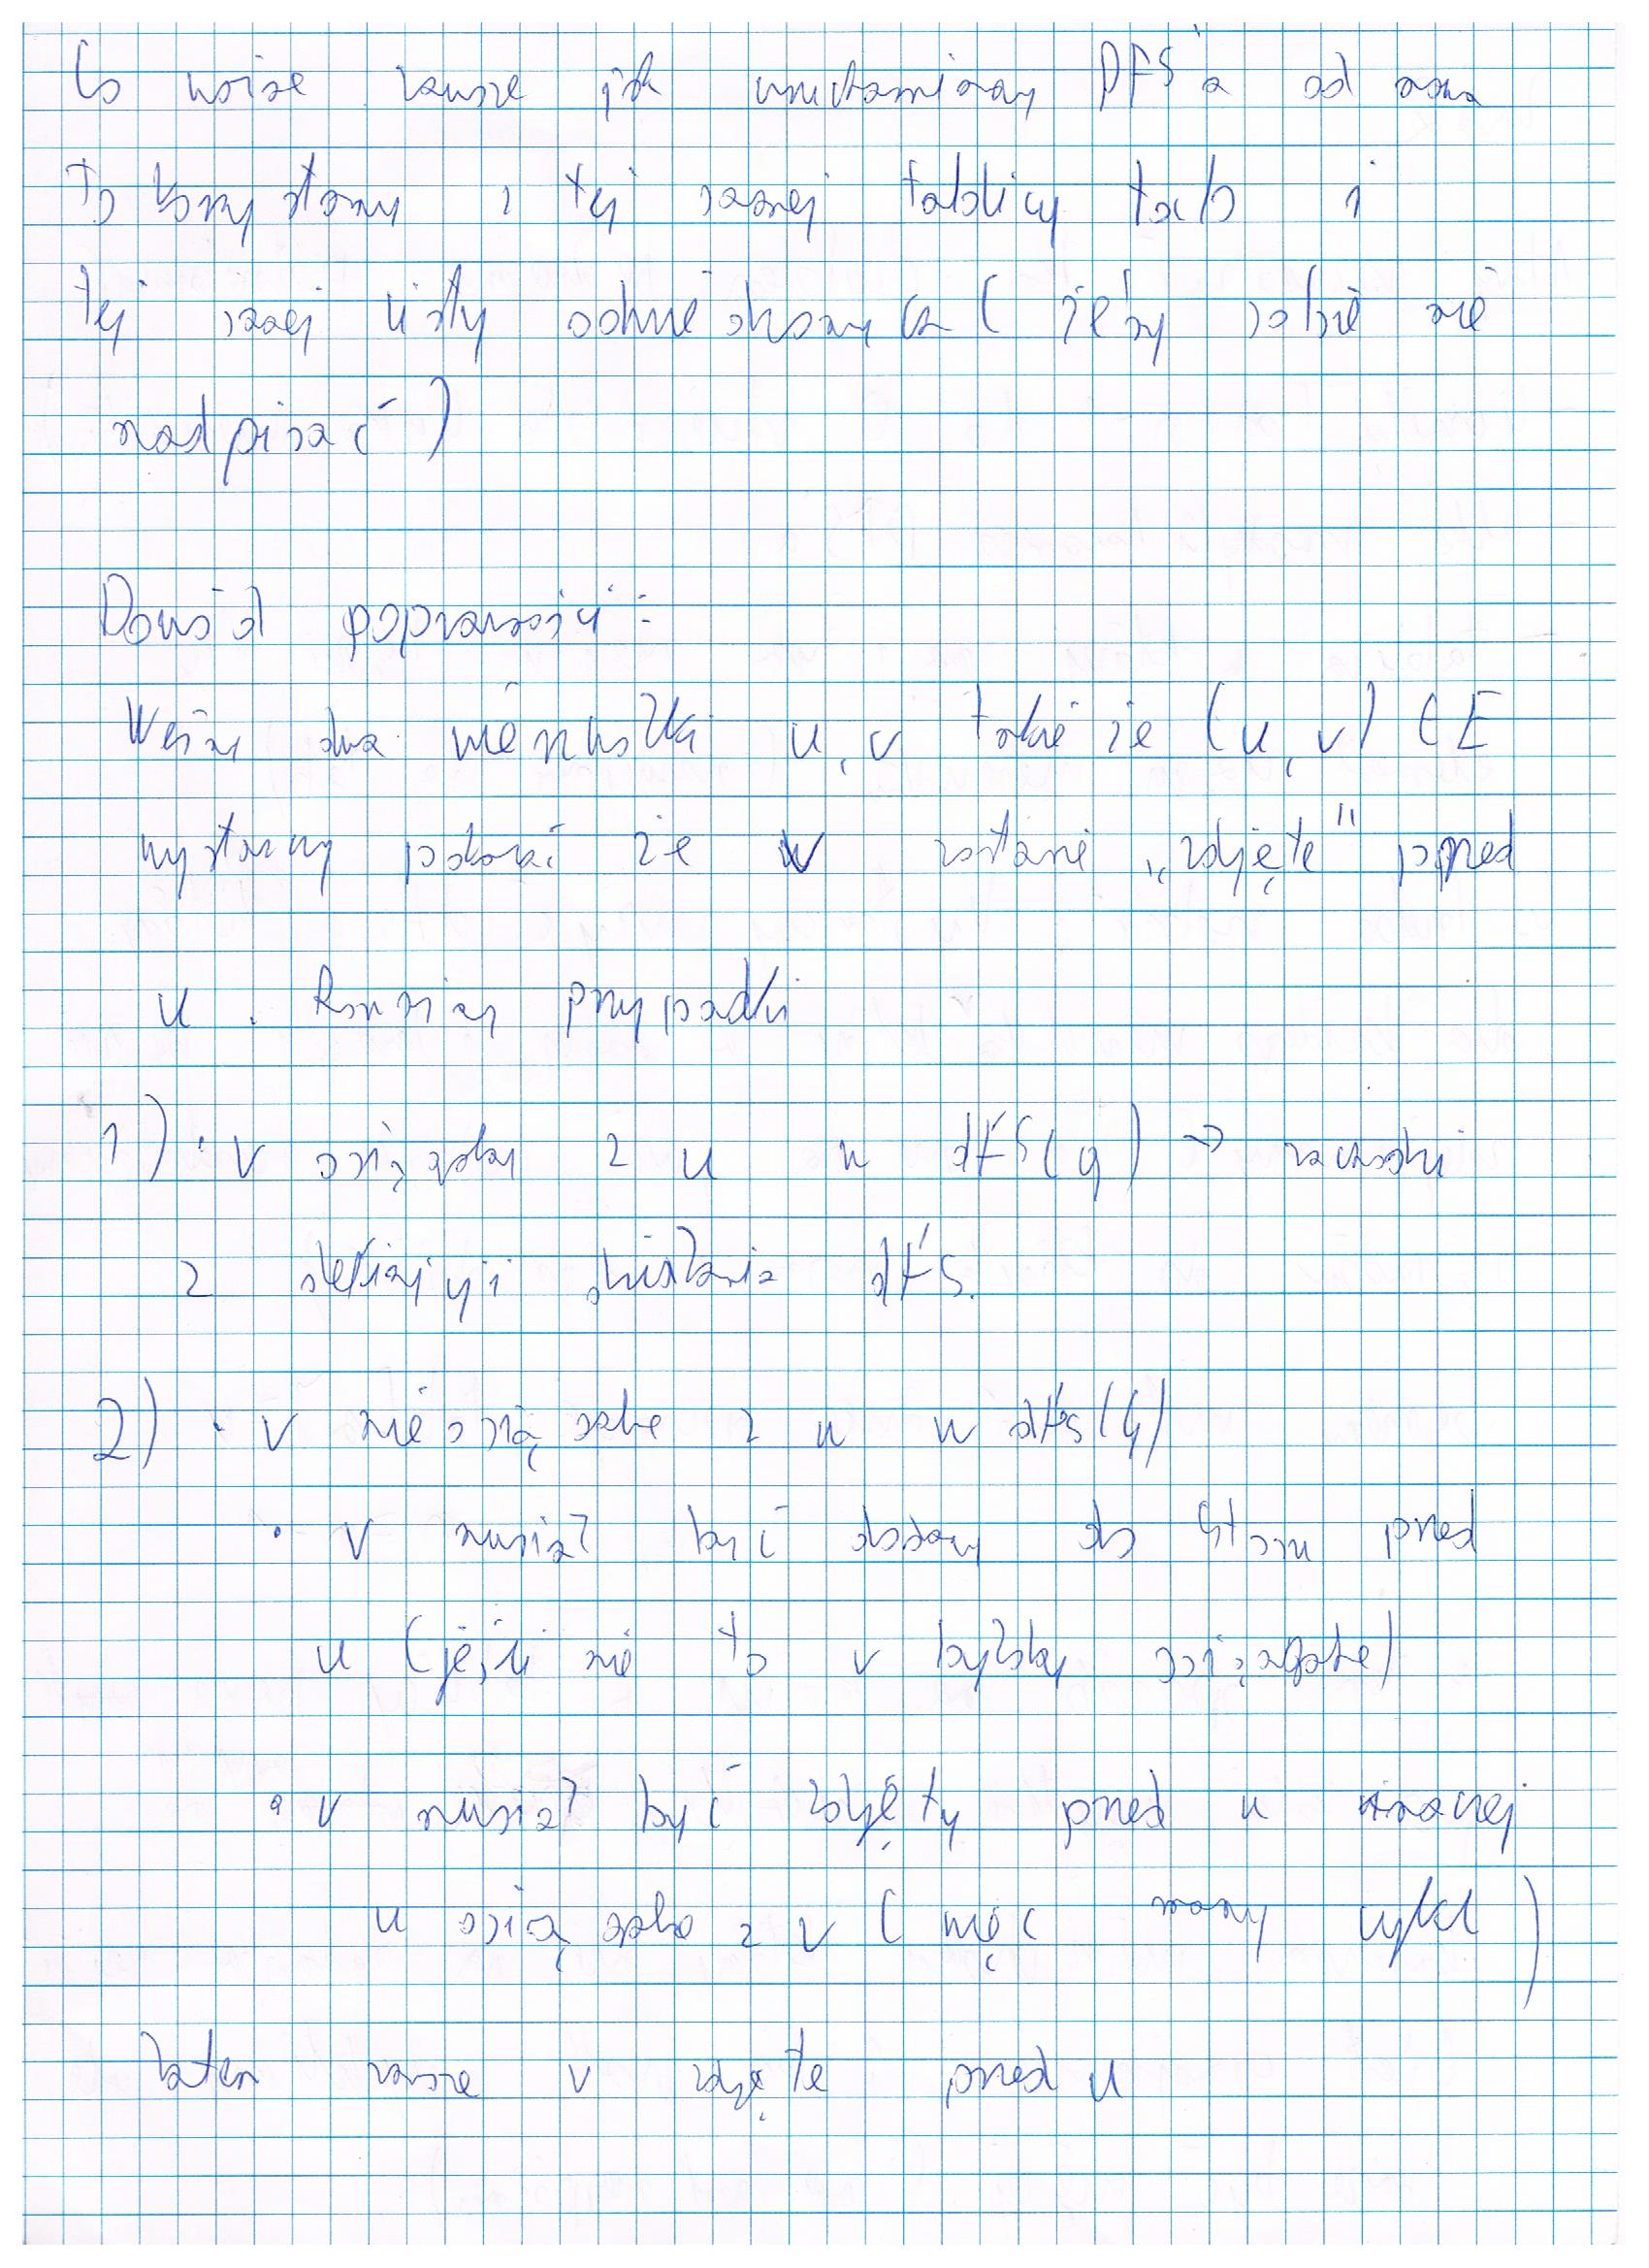 Co ważne zawsze jak uruchamiamy DFS'a od nowa
To korzystamy z tej samej tablicy tab i
tej samej listy odwiedzonych (żeby sobie nie
nadpisać)
Dowód poprawności:
Weźmy dwa wierzchołki u, v takie że (u, v) ∈ E
wystarczy pokazać że v zostanie „zdjęte" przed
u. Rozważmy przypadki
1) • v osiągalny z u w dFS(G) → zachodzi
z definicji działania dFS.
2) • v nieosiągalne z u w dfs(G)
• v musiał być dodany do stosu przed
u (jeśli nie to v byłoby osiągalne)
• v musiał być zdjęty przed u inaczej
u osiągalne z v (więc mamy cykl)
Zatem zawsze v zdjęte przed u